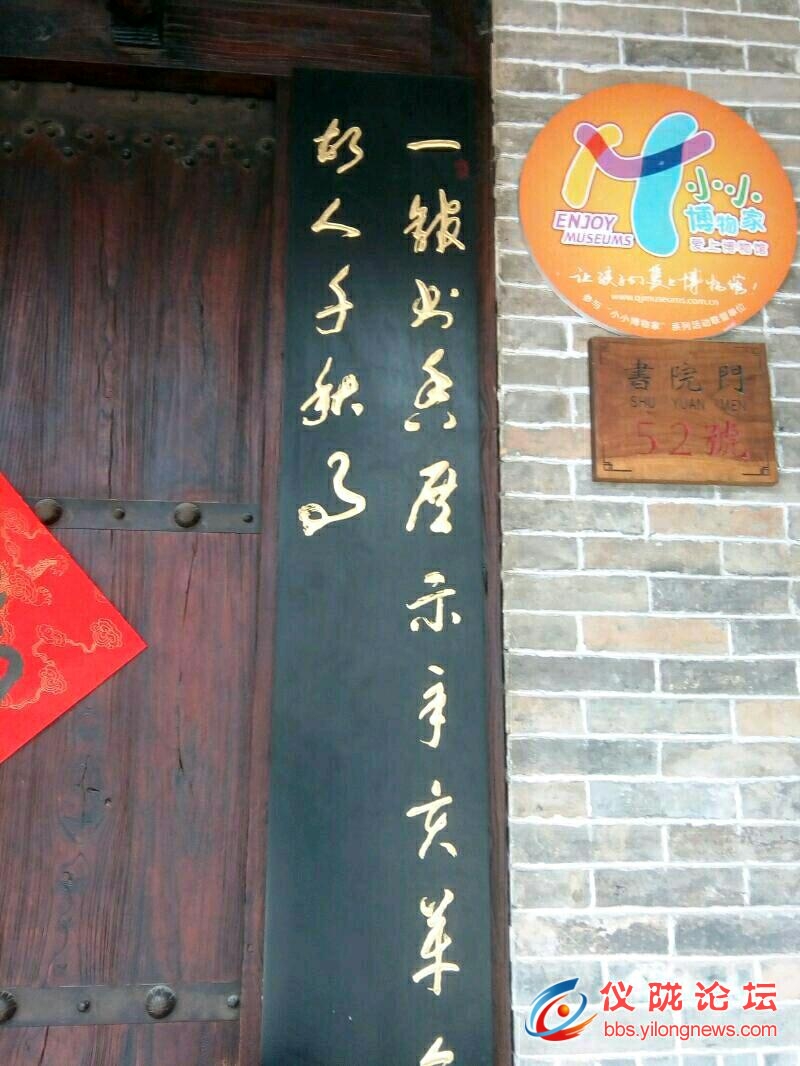 一館书香展示辛亥革
故人千秋
ENJOY
MUSEUMS
小小
博物家
爱上博物馆
让孩子们爱上博物馆!
www.qjmuseums.com.cn
参与“小小博物家”系列活动联盟单位
書院門
SHU YUAN MEN
52號
仪陇论坛
bbs.yilongnews.com